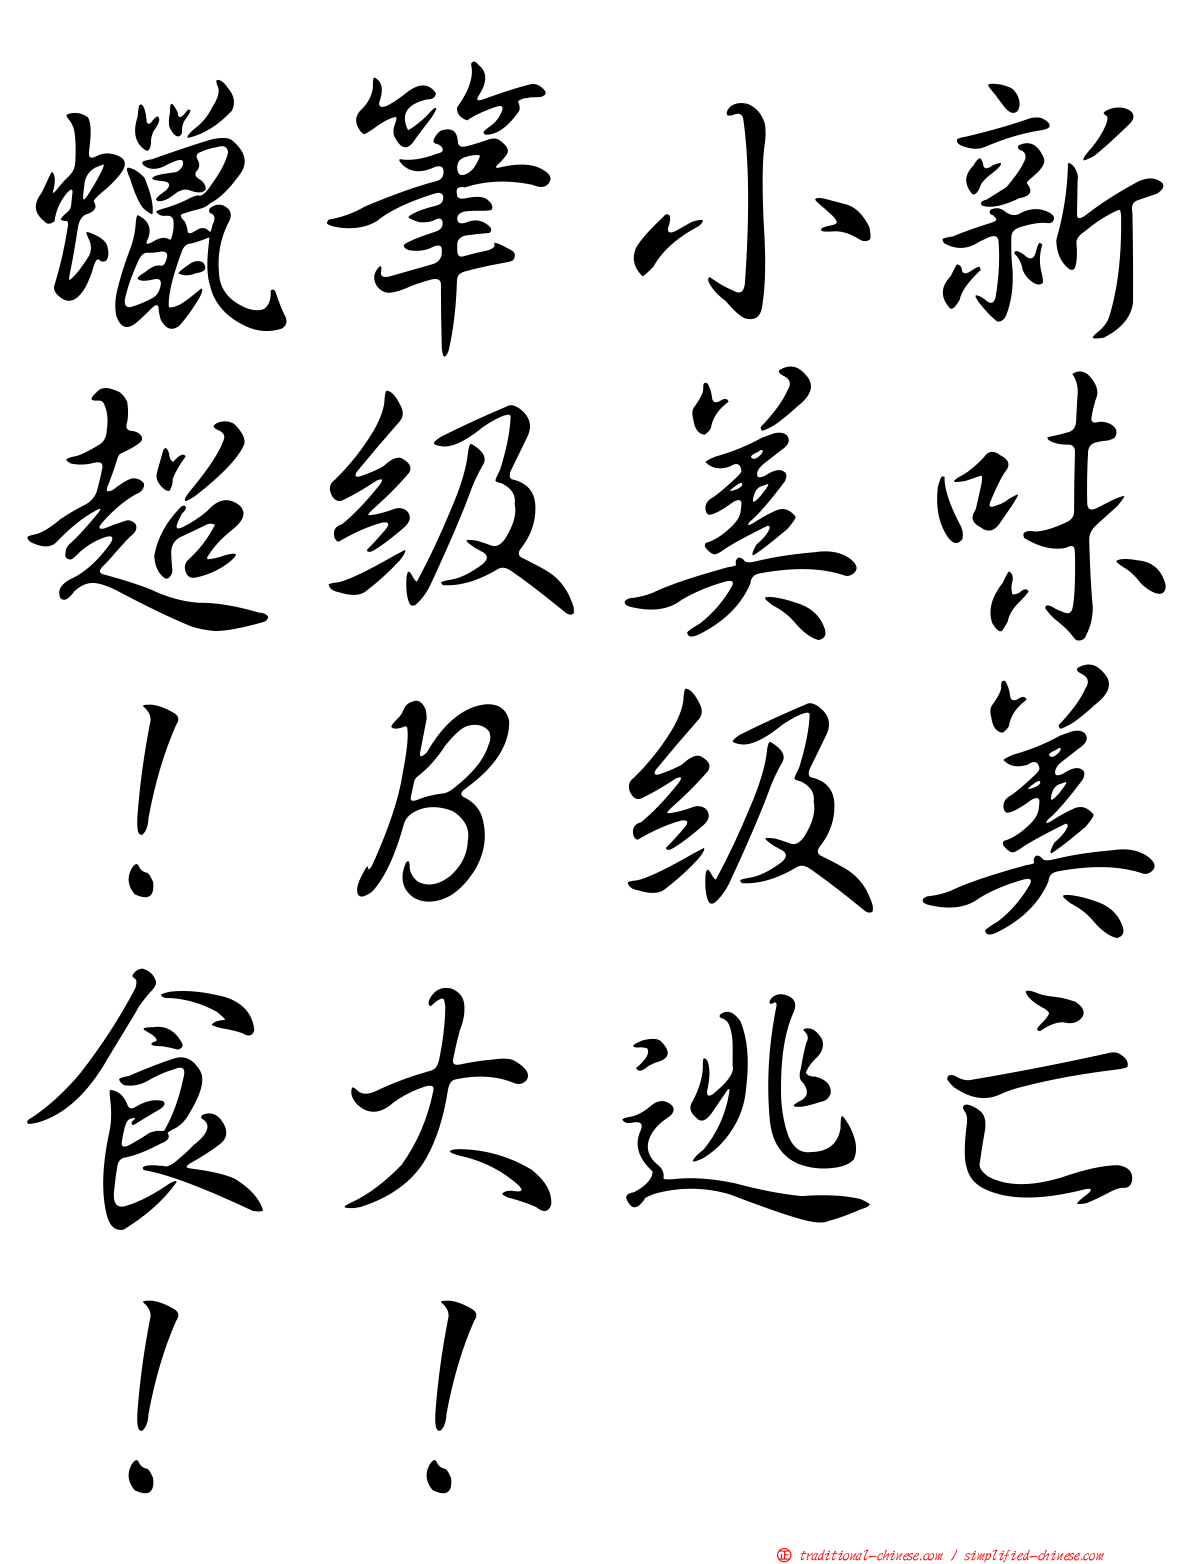 蠟筆小新
超級美味
！B級美
食大逃亡
！！
㊣ traditional-chinese.com / simplified-chinese.com